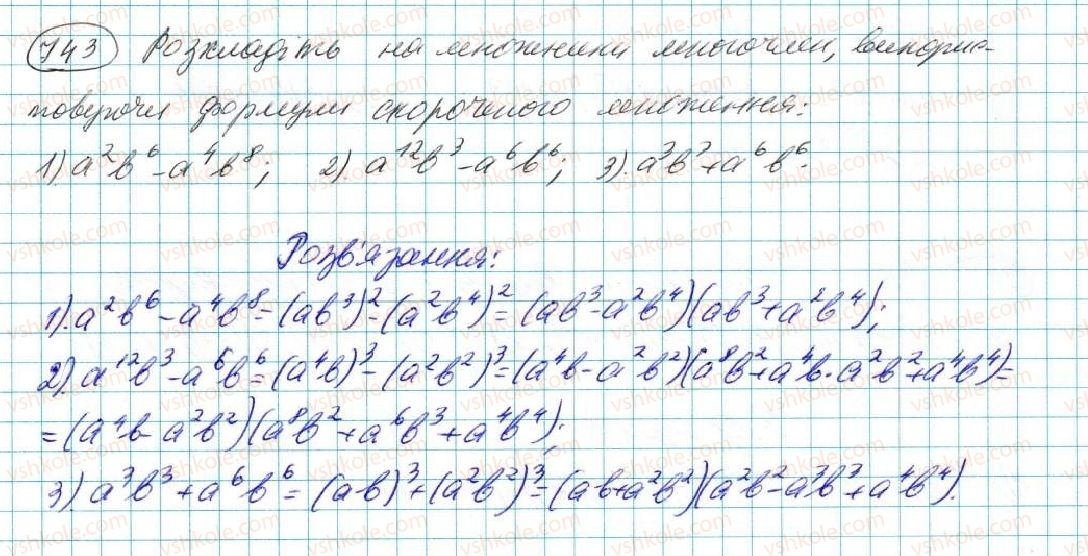 743 Розкладіть на множники многочлен, викорис-
товуючи формули скороченого множення:
1). a²b⁶ - a⁴b⁸; 2). a¹²b³ - a⁶b⁶; 3). a³b³ + a⁶b⁶.
Розв'язання:
1). a²b⁶ - a⁴b⁸ = (ab³)² - (a²b⁴)² = (ab³ - a²b⁴)(ab³ + a²b⁴);
2). a¹²b³ - a⁶b⁶ = (a⁴b)³ - (a²b²)³ = (a⁴b - a²b²)(a⁸b² + a⁴b · a²b² + a⁴b⁴) =
= (a⁴b - a²b²)(a⁸b² + a⁶b³ + a⁴b⁴);
3). a³b³ + a⁶b⁶ = (ab)³ + (a²b²)³ = (ab + a²b²)(a²b² - a³b³ + a⁴b⁴).
vshkole.com